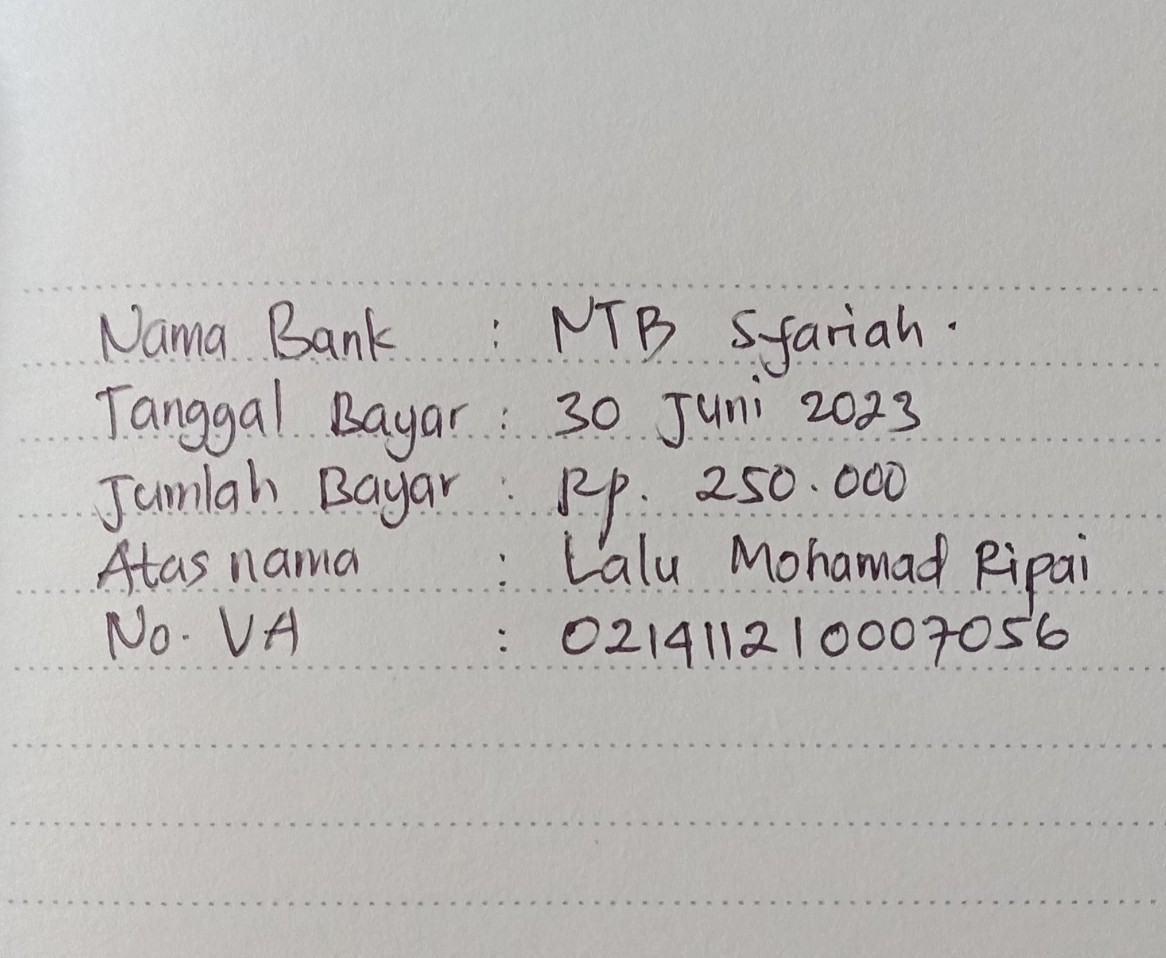 Nama Bank : NTB Syariah.
Tanggal Bayar : 30 Juni 2023
Jumlah Bayar : Rp. 250.000
Atas nama : Lalu Mohamad Ripai
No. VA : 021411210007056